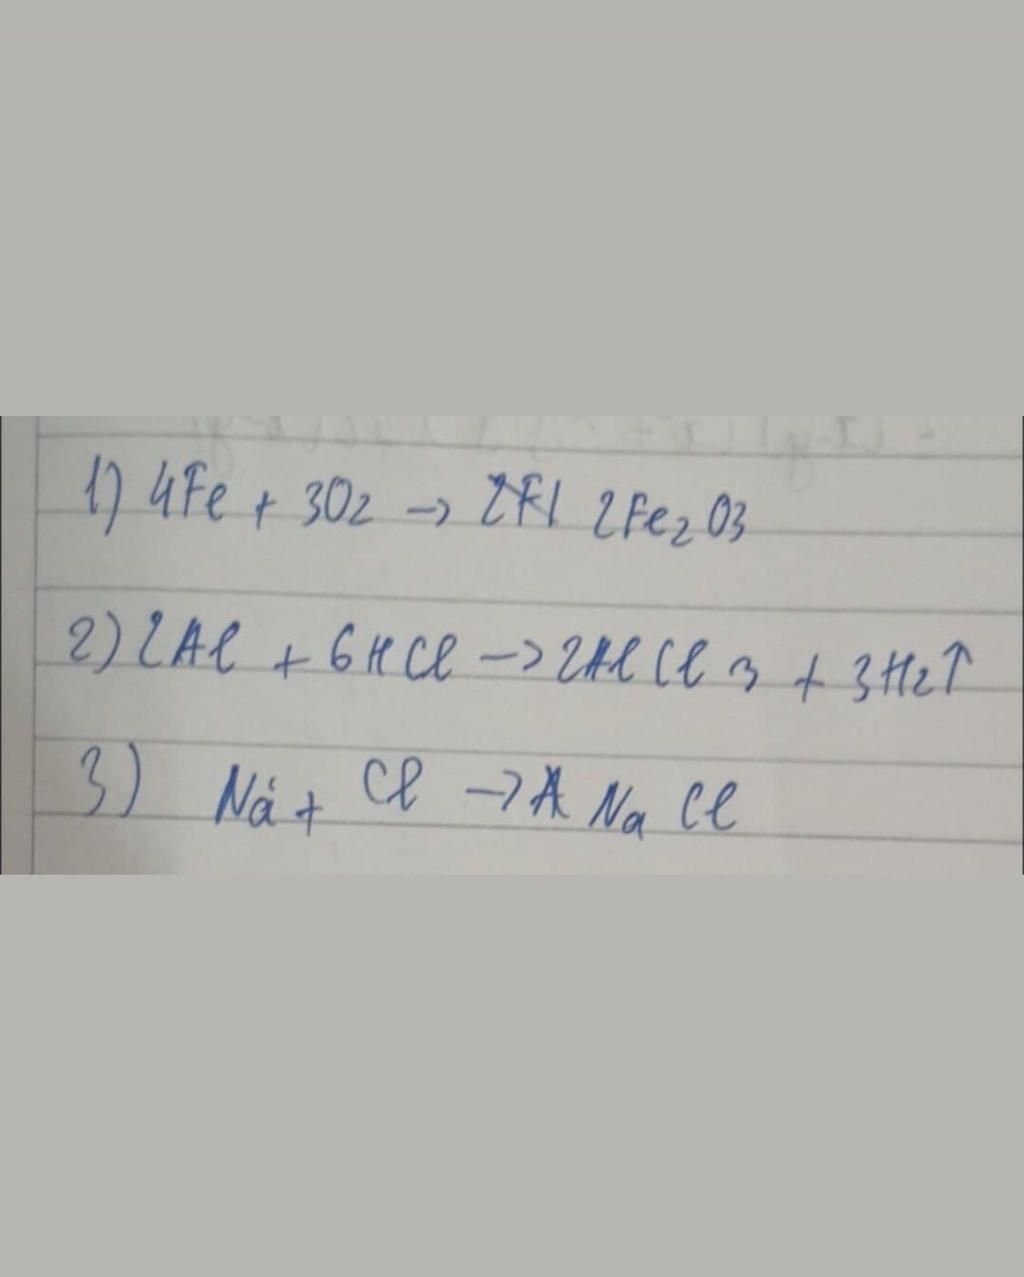 1) 4Fe + 3O2 → 2Fl 2Fe2O3
2) 2Al + 6HCl → 2AlCl3 + 3H2↑
3) Na + Cl → A NaCl